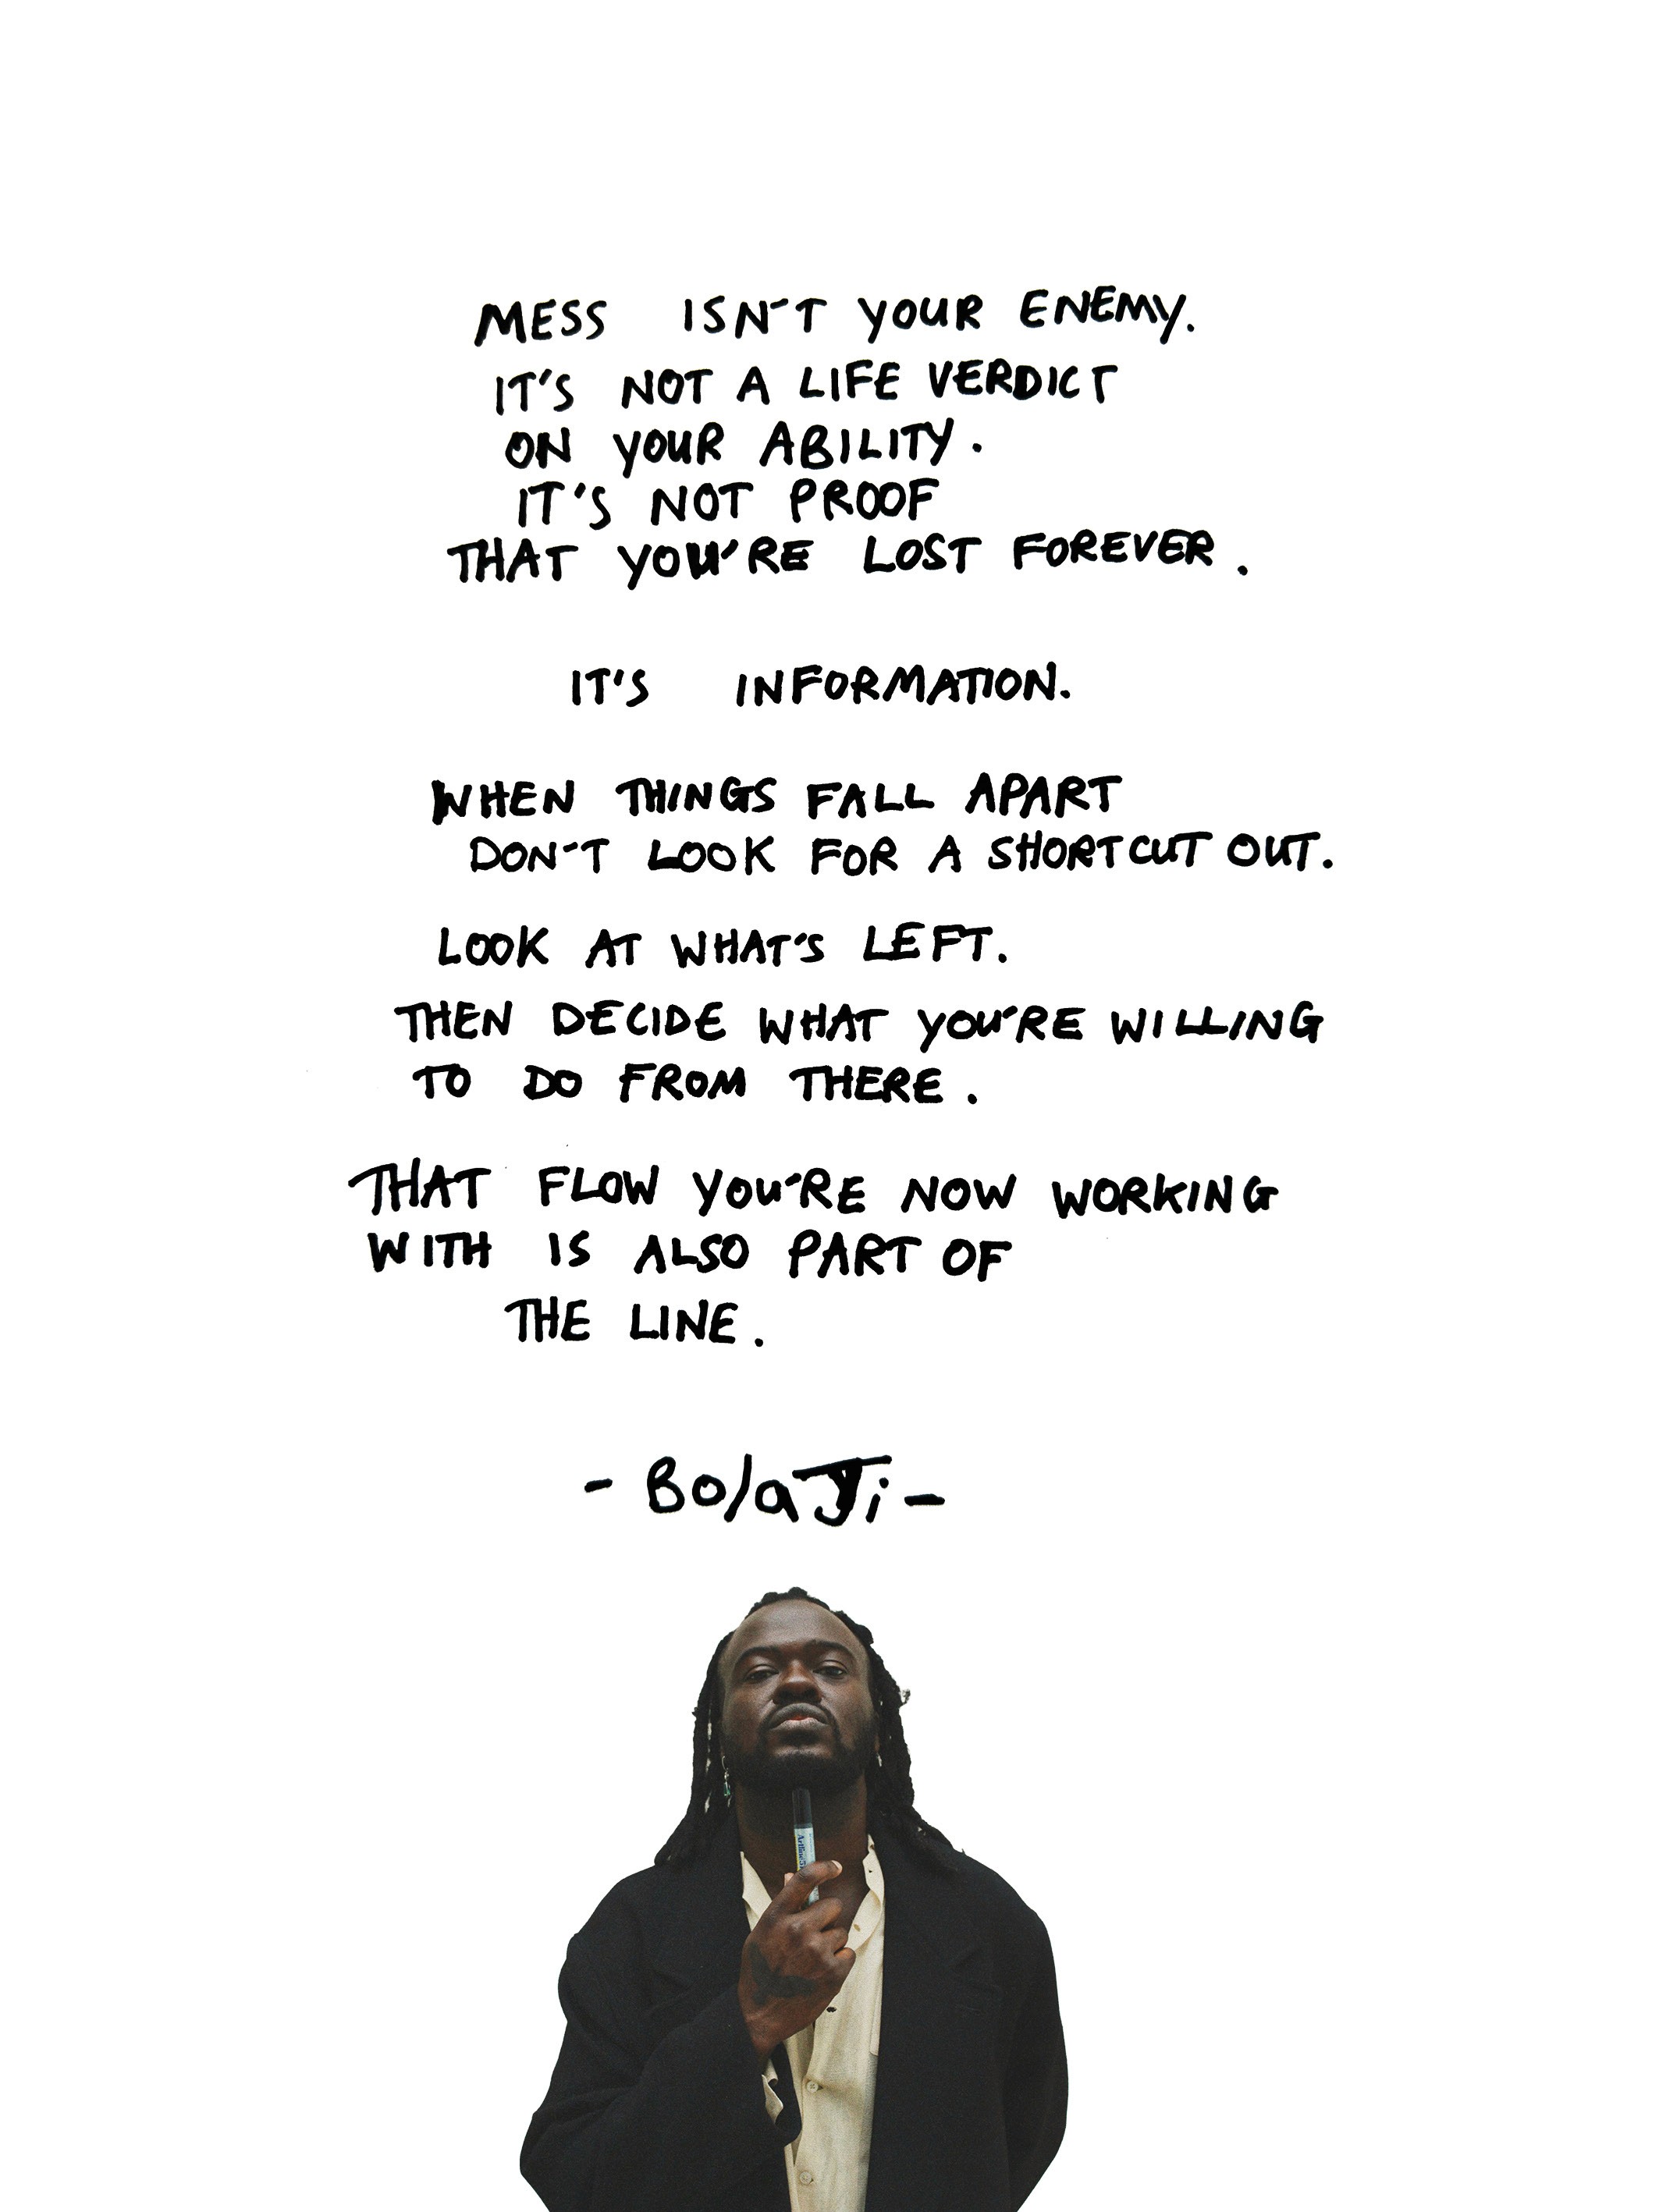 MESS ISN'T YOUR ENEMY.
IT'S NOT A LIFE VERDICT
ON YOUR ABILITY.
IT'S NOT PROOF
THAT YOU'RE LOST FOREVER.
IT'S INFORMATION.
WHEN THINGS FALL APART
DON'T LOOK FOR A SHORTCUT OUT.
LOOK AT WHAT'S LEFT.
THEN DECIDE WHAT YOU'RE WILLING
TO DO FROM THERE.
THAT FLOW YOU'RE NOW WORKING
WITH IS ALSO PART OF
THE LINE.
- BolaJi -
Artline